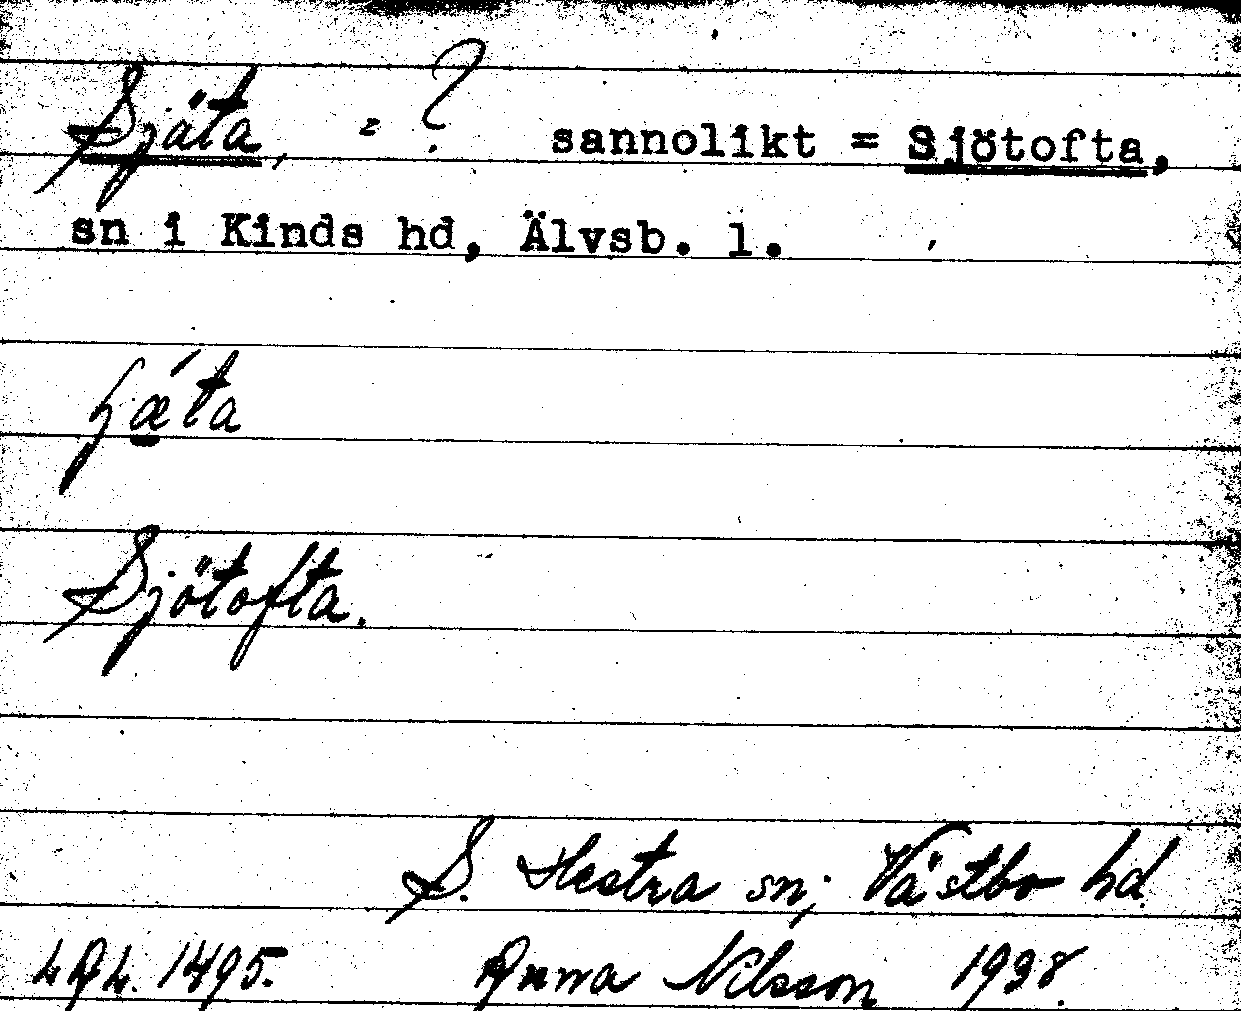 Sjäta, = ? sannolikt = Sjötofta,
sn i Kinds hd, Älvsb. l.
Sjötofta.
S. Hestra sn; Västbo hd.
1495. Anna Nilsson 1928.